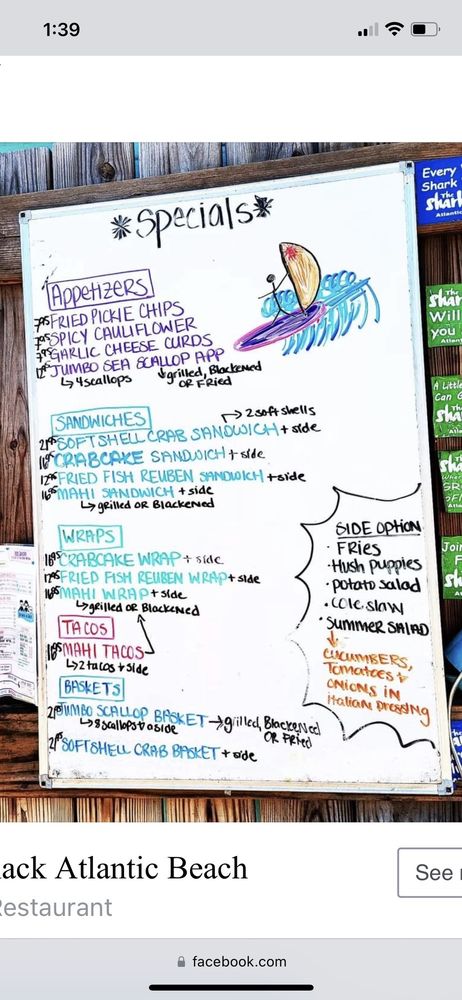 1:39
*Specials*
Appetizers
7.95 FRIED PICKLE CHIPS
7.95 SPICY CAULIFLOWER
7.95 GARLIC CHEESE CURDS
JUMBO SEA SCALLOP APP
↳ 4 scallops
↓ grilled, Blackened
OR Fried
SANDWICHES
→ 2 soft shells
21.95 SOFTSHELL CRAB SANDWICH + side
16.95 CRABCAKE SANDWICH + side
FRIED FISH REUBEN SANDWICH + side
16.95 MAHI SANDWICH + side
↳ grilled OR Blackened
WRAPS
16.95 CRABCAKE WRAP + side
FRIED FISH REUBEN WRAP + side
16.95 MAHI WRAP + side
↳ grilled OR Blackened
TACOS
MAHI TACOS
↳ 2 tacos + side
BASKETS
21.95 JUMBO SCALLOP BASKET → grilled, Blackened
OR Fried
↳ 8 scallops + a side
21.95 SOFTSHELL CRAB BASKET + side
SIDE OPTION
· Fries
· Hush puppies
· potato salad
· cole slaw
· SUMMER SALAD
↓
CUCUMBERS,
Tomatoes +
ONIONS IN
Italian Dressing
Every
Shark
The
shar
Atlantic
The
shar
Will
you
A Little
Can G
The
sha
The
sha
Join
F
sha
ack Atlantic Beach
Restaurant
See
facebook.com